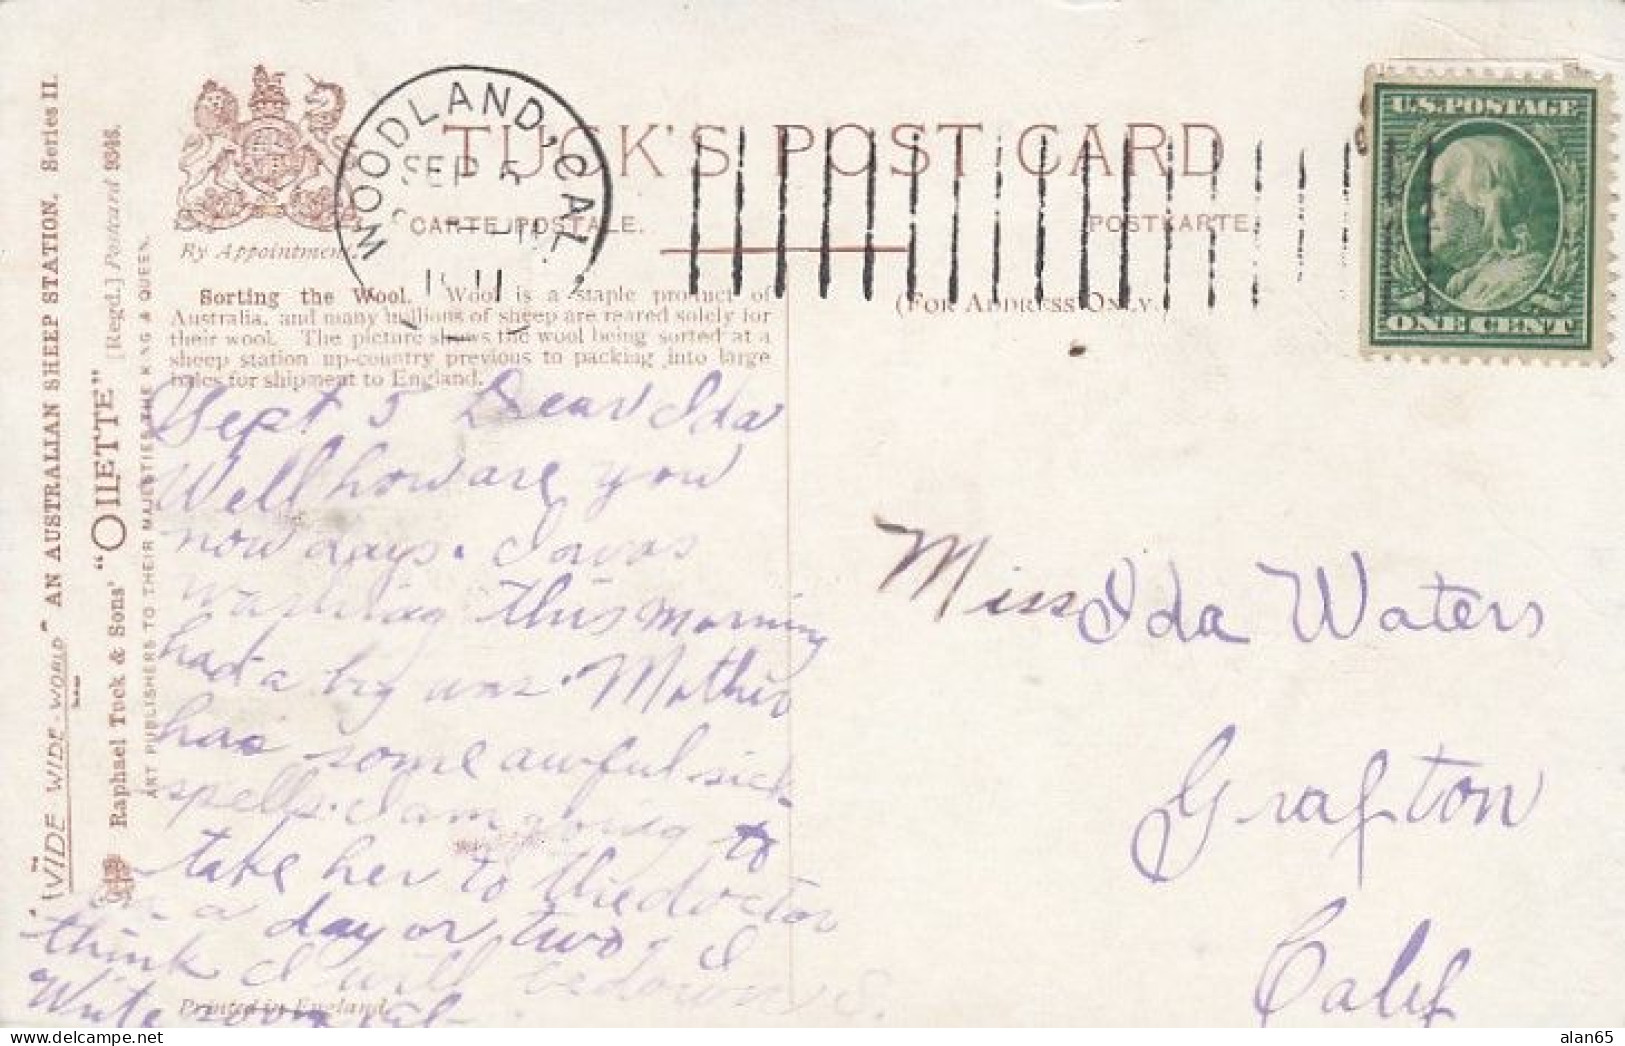 TUCK'S POST CARD
CARTE POSTALE.
POSTKARTE.
By Appointment.
(FOR ADDRESS ONLY.)
WOODLAND, CAL.
SEP 5
1911
U.S. POSTAGE
ONE CENT
"WIDE-WIDE-WORLD" AN AUSTRALIAN SHEEP STATION. Series II.
Raphael Tuck & Sons' "OILETTE" [Regd.] Postcard 9346.
ART PUBLISHERS TO THEIR MAJESTIES THE KING & QUEEN.
Sorting the Wool. Wool is a staple product of
Australia, and many millions of sheep are reared solely for
their wool. The picture shows the wool being sorted at a
sheep station up-country previous to packing into large
bales for shipment to England.
Sept 5 Dear Ida
Well how are you
now days. I was
washing this morning
had a big
Mother
has some awful sick
spells. I am going to
take her to the doctor
in a day or two, I
think I will be down S.
Write soon
Printed in England.
Miss Ida Waters
Grafton
Calif
alan65